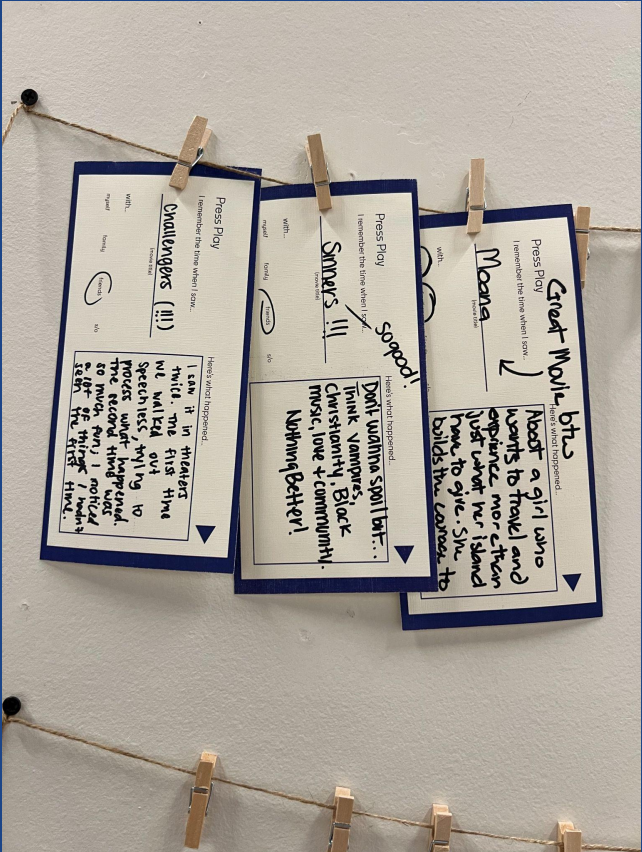 Press Play
I remember the time when I saw...
Challengers (!!!)
(movie title)
with...
myself family friends s/o
Here's what happened...
I saw it in theaters
twice. The first time
we walked out
speechless, trying to
process what happened.
The second time was
so much fun, I noticed
a lot of things I hadn't
seen the first time.
Press Play
I remember the time when I saw...
Sinners !!!
(movie title)
so good!
with...
myself family friends s/o
Here's what happened...
Don't wanna spoil but...
Think vampires,
Christianity, Black
music, love + community.
Nothing Better!
Great Movie, btw
Press Play
I remember the time when I saw...
Moana
(movie title)
with...
Here's what happened...
About a girl who
wants to travel and
experience more than
just what her island
have to give. She
builds the courage to